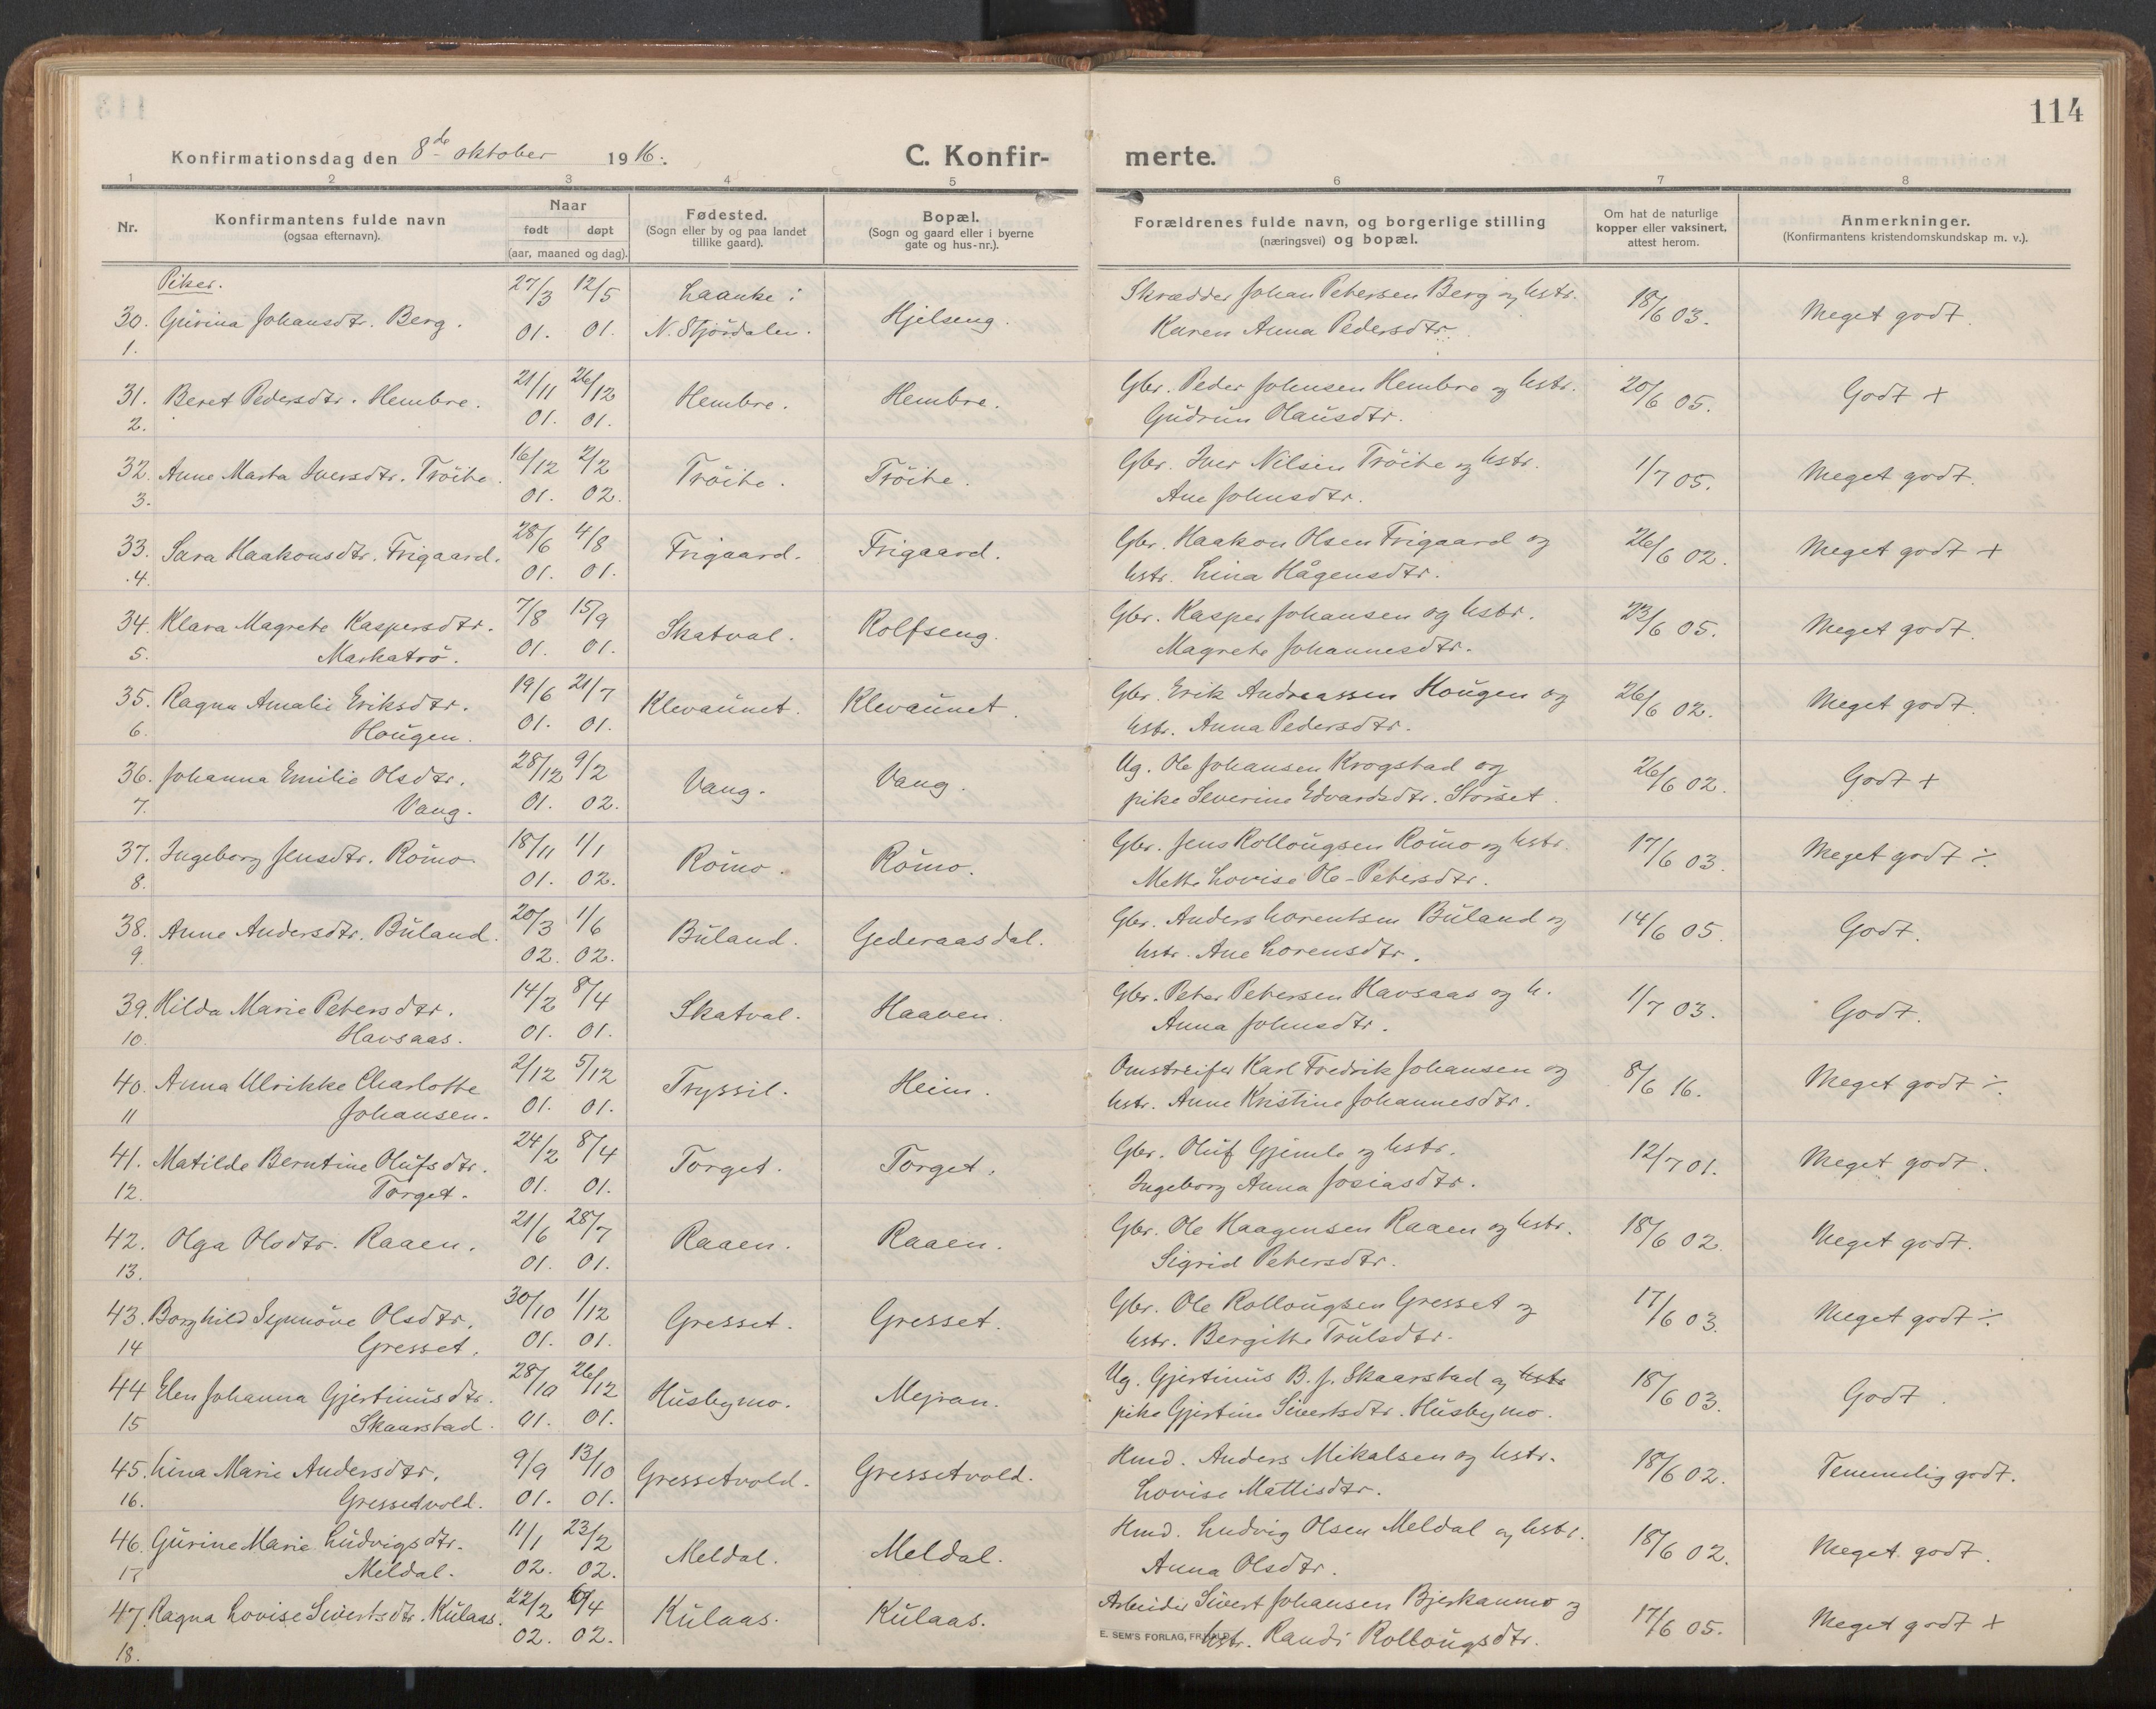 114
Konfirmationsdag den 8de oktober 1916.
C. Konfirmerte.
1 2 3 4 5 6 7 8
Nr.
Konfirmantens fulde navn
(ogsaa efternavn).
Naar
født døpt
(aar, maaned og dag).
Fødested.
(Sogn eller by og paa landet
tillike gaard).
Bopæl.
(Sogn og gaard eller i byerne
gate og hus-nr.).
Forældrenes fulde navn, og borgerlige stilling
(næringsvei) og bopæl.
Om hat de naturlige
kopper eller vaksinert,
attest herom.
Anmerkninger.
(Konfirmantens kristendomskundskap m. v.).
Piker.
27/3 12/5 Laanke i Skrædder Johan Petersen Berg og hstr.
30. Gurina Johansdtr. Berg. 01. 01. N. Stjördalen. Hjelseng. Karen Anna Pedersdtr. 18/6 03. Meget godt.
1.
21/11 26/12 Gbr. Peder Johnsen Hembre og hstr.
31. Beret Pedersdtr. Hembre. 01. 01. Hembre. Hembre. Gudrun Olausdtr. 20/6 05. Godt +
2.
16/12 2/2 Gbr. Iver Nilsen Tröite og hstr.
32. Anne Marta Iversdtr. Tröite. 01. 02. Tröite. Tröite. Ane Johnsdtr. 1/7 05. Meget godt.
3.
28/6 4/8 Gbr. Haakon Olsen Frigaard og
33. Sara Haakonsdtr. Frigaard. 01. 01. Frigaard. Frigaard. hstr. Lina Hågensdtr. 26/6 02. Meget godt +
4.
34. Klara Magrete Kaspersdtr. 7/8 15/9 Skatval. Rolfseng. Gbr. Kasper Johansen og hstr. 23/6 05. Meget godt.
5. Markatrö. 01. 01. Magrete Johannesdtr.
35. Ragna Amalie Eriksdtr. 19/6 21/7 Klevaunet. Klevaunet. Gbr. Erik Andreassen Hougen og 26/6 02. Meget godt.
6. Hougen. 01. 01. hstr. Anna Pedersdtr.
36. Johanna Emilie Olsdtr. 28/12 9/2 Vang. Vang. Ug. Ole Johansen Krogstad og 26/6 02. Godt +
7. Vang. 01. 02. pike Severine Edvardsdtr. Storset.
37. Ingeborg Jensdtr. Römo 18/11 1/1 Römo. Römo. Gbr. Jens Rollougsen Römo og hstr. 17/6 03. Meget godt ÷
8. 01. 02. Mette Lovise Ole-Petersdtr.
38. Anne Andersdtr. Buland. 20/3 1/6 Buland. Gederaasdal. Gbr. Anders Lorentsen Buland og 14/6 05. Godt.
9. 02. 02. hstr. Ane Lorensdtr.
39. Hilda Marie Petersdtr. 14/2 8/4 Skatval. Haaven. Gbr. Peter Petersen Havsaas og h. 1/7 03. Godt.
10. Havsaas. 01. 01. Anna Johnsdtr.
40. Anna Ulrikke Charlotte 2/12 5/12 Tryssil. Heim. Omstreifer Karl Fredrik Johansen og 8/6 16. Meget godt ÷
11 Johansen. 01. 01. hstr. Anne Kristine Johannesdtr.
41. Matilde Berntine Olufsdtr. 24/2 8/4 Torget. Torget. Gbr. Oluf Gjemle og hstr. 12/7 01. Meget godt.
12. Torget. 01. 01. Ingeborg Anna Josiasdtr.
42. Olga Olsdtr. Raaen. 21/6 28/7 Raaen. Raaen. Gbr. Ole Haagensen Raaen og hstr. 18/6 02. Meget godt.
13. 01. 01. Sigrid Petersdtr.
43. Borghild Synnöve Olsdtr. 30/10 1/12 Gresset. Gresset. Gbr. Ole Rollougsen Gresset og 17/6 03. Meget godt ÷
14 Gresset. 01. 01. hstr. Bergitte Trulsdtr.
44 Elen Johanna Gjertinusdtr. 28/10 26/12 Husbymo. Mejran. Ug. Gjertinus B. J. Skaarstad og hstr 18/6 03. Godt.
15 Skaarstad. 01. 01. pike Gjertine Sivertsdtr. Husbymo.
45. Lina Marie Andersdtr. 9/9 13/10 Gressetvold. Gressetvold. Hmd. Anders Mikalsen og hstr. 18/6 02. Temmelig godt.
16. Gressetvold. 01. 01. Lovise Mattisdtr.
46. Gurine Marie Ludvigsdtr. 11/1 23/2 Meldal. Meldal. Hmd. Ludvig Olsen Meldal og hstr. 18/6 02. Meget godt.
17 Meldal. 02. 02. Anna Olsdtr.
47. Ragna Lovise Sivertsdtr. Kulaas. 22/2 6/4 Kulaas. Kulaas. Arbeider Sivert Johansen Bjerkanmo og 17/6 05. Meget godt +
18. 02. 02. hstr. Randi Rollougsdtr.
E. SEM'S FORLAG, FR.HALD